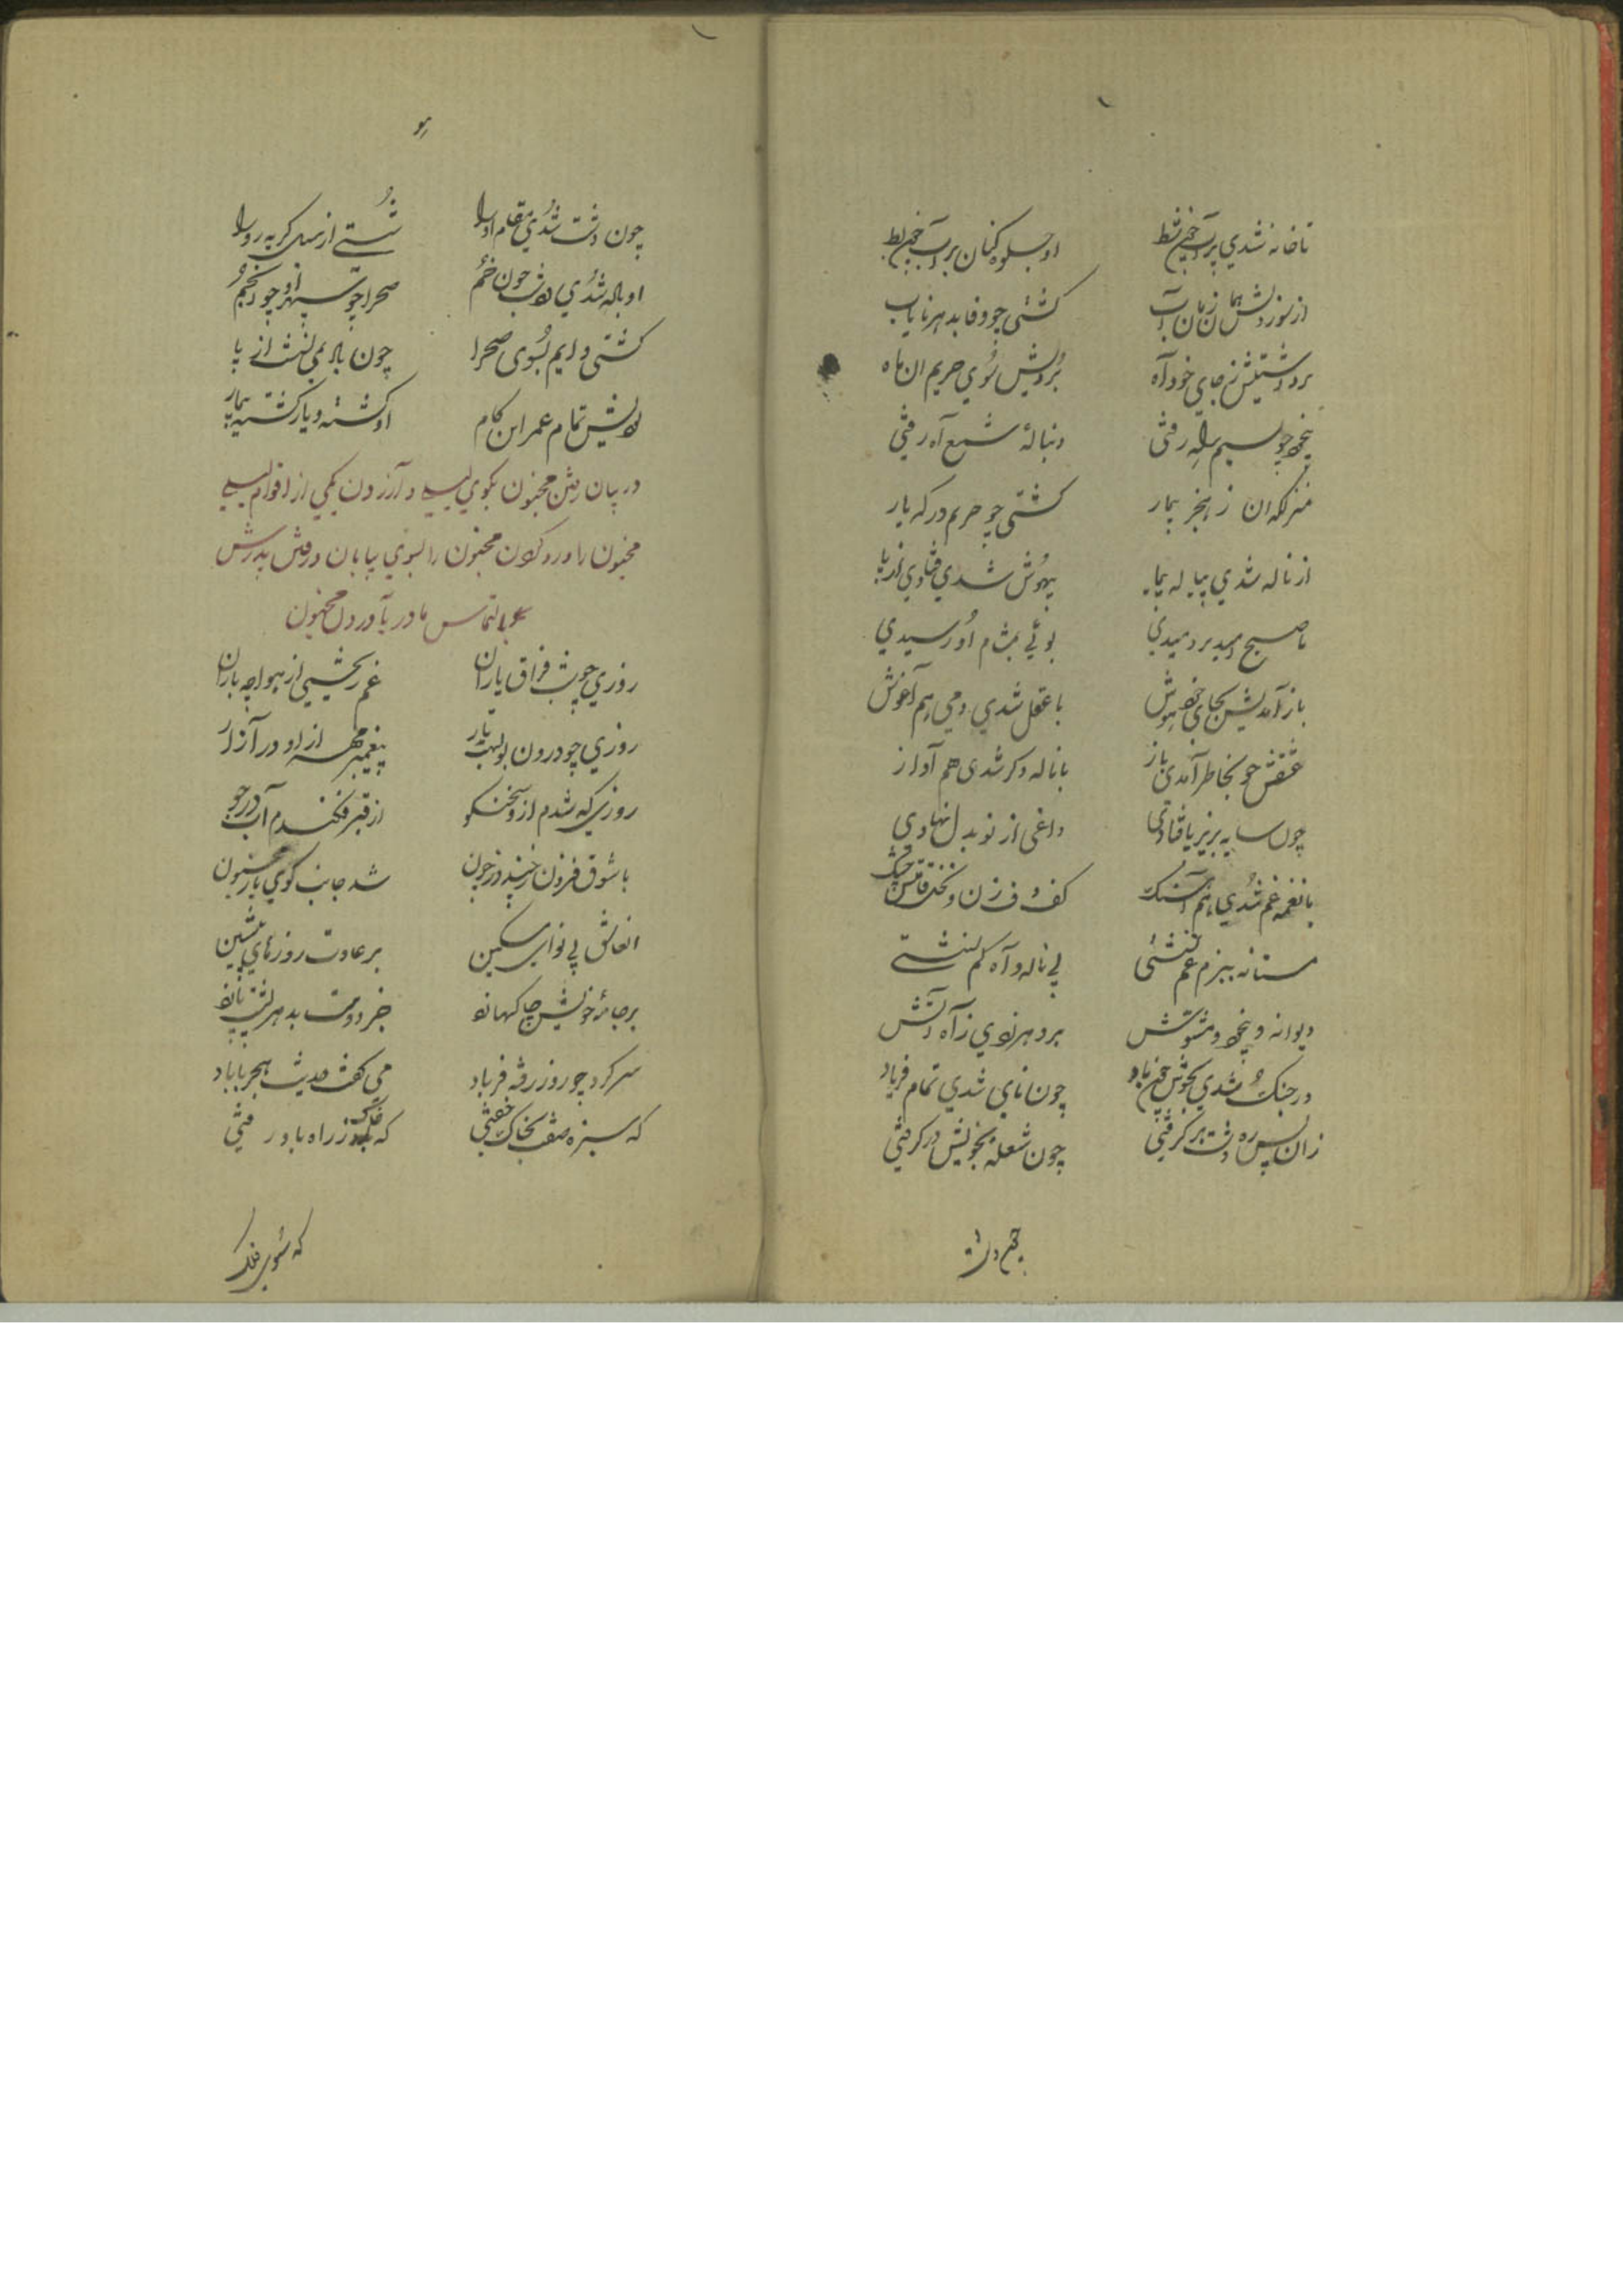 تا خانه شدي پر آب چون شط او جلوه کنان بر آب چون بط
از سوز دلش همان زمان آب کشتی چو وفا بدهر نایاب
برداشتیش ز جای خود آه بردیش سوي حریم ان ماه
بیخود چو نسیم راه رفتی دنبالهٔ شمع آه رفتی
منزلکه ان ز هجر بیمار کشتی چو حریم درکه یار
از ناله شدي پیاله پیما بیهوش شدي فتادي از پا
تا صبح امید بردمیدي بوئی بمشام او رسیدي
باز آمدیش بجای خود هوش با عقل شدي دمی هم آغوش
عشقش چو بخاطر آمدی باز با ناله دکر شدی هم آواز
چون سایه بزیر پا فتادی داغی از نو بدل نهادي
با نغمه غم شدي هم آهنک کف دف زن و قامتش چنک
مستانه ببزم غم نشستی بی ناله و آه کم نشستی
دیوانه و بیخود و مشوش
در جنک شدي بخویش چون باد چون ناي شدي تمام فریاد
زان پس ره دشت بر کرفتی چون شعله بخویش در کرفتی
چون دشت
هو
چون دشت شدي مقام او را شستی از سیل کریه رو را
او ناله شدي در شب چون خم صحرا چو سپهر او چو انجم
کشتی دایم بسوی صحرا چون ناله می نشست از پا
بودیش تمام عمر این کام او کشته و یار کشته
در بیان رفتن مجنون بکوي لیلی و آزردن یکی از اقوام لیلی
مجنون را و رو کردن مجنون را بسوي بیابان و رفتن پدرش
بالتماس مادر بآوردن مجنون
روزي چو شب فراق یاران غم ریختی از هوا چه باران
روزي چو درون بولهب تار پیغمبر مهر از او در آزار
روزي که شدم از و سخنکو از قیر فکندم آب در جو
با شوق فزون ز چند و ز چون شد جانب کوي یار مجنون
ان عاشق بی نواي مسکین بر عادت روزهاي پیشین
بر جامهٔ خویش چاکها زد
سر کرد چو روز رفته فریاد می کفت حدیث هجر با باد
که سبزه صفت بخاک خفتی که خاک ز راه یار رفتی
که سوي فلک